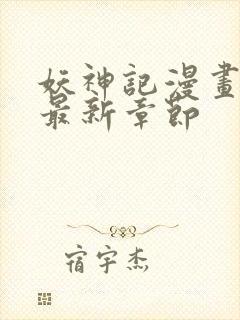 妖神記漫畫
最新章節
宿宇杰